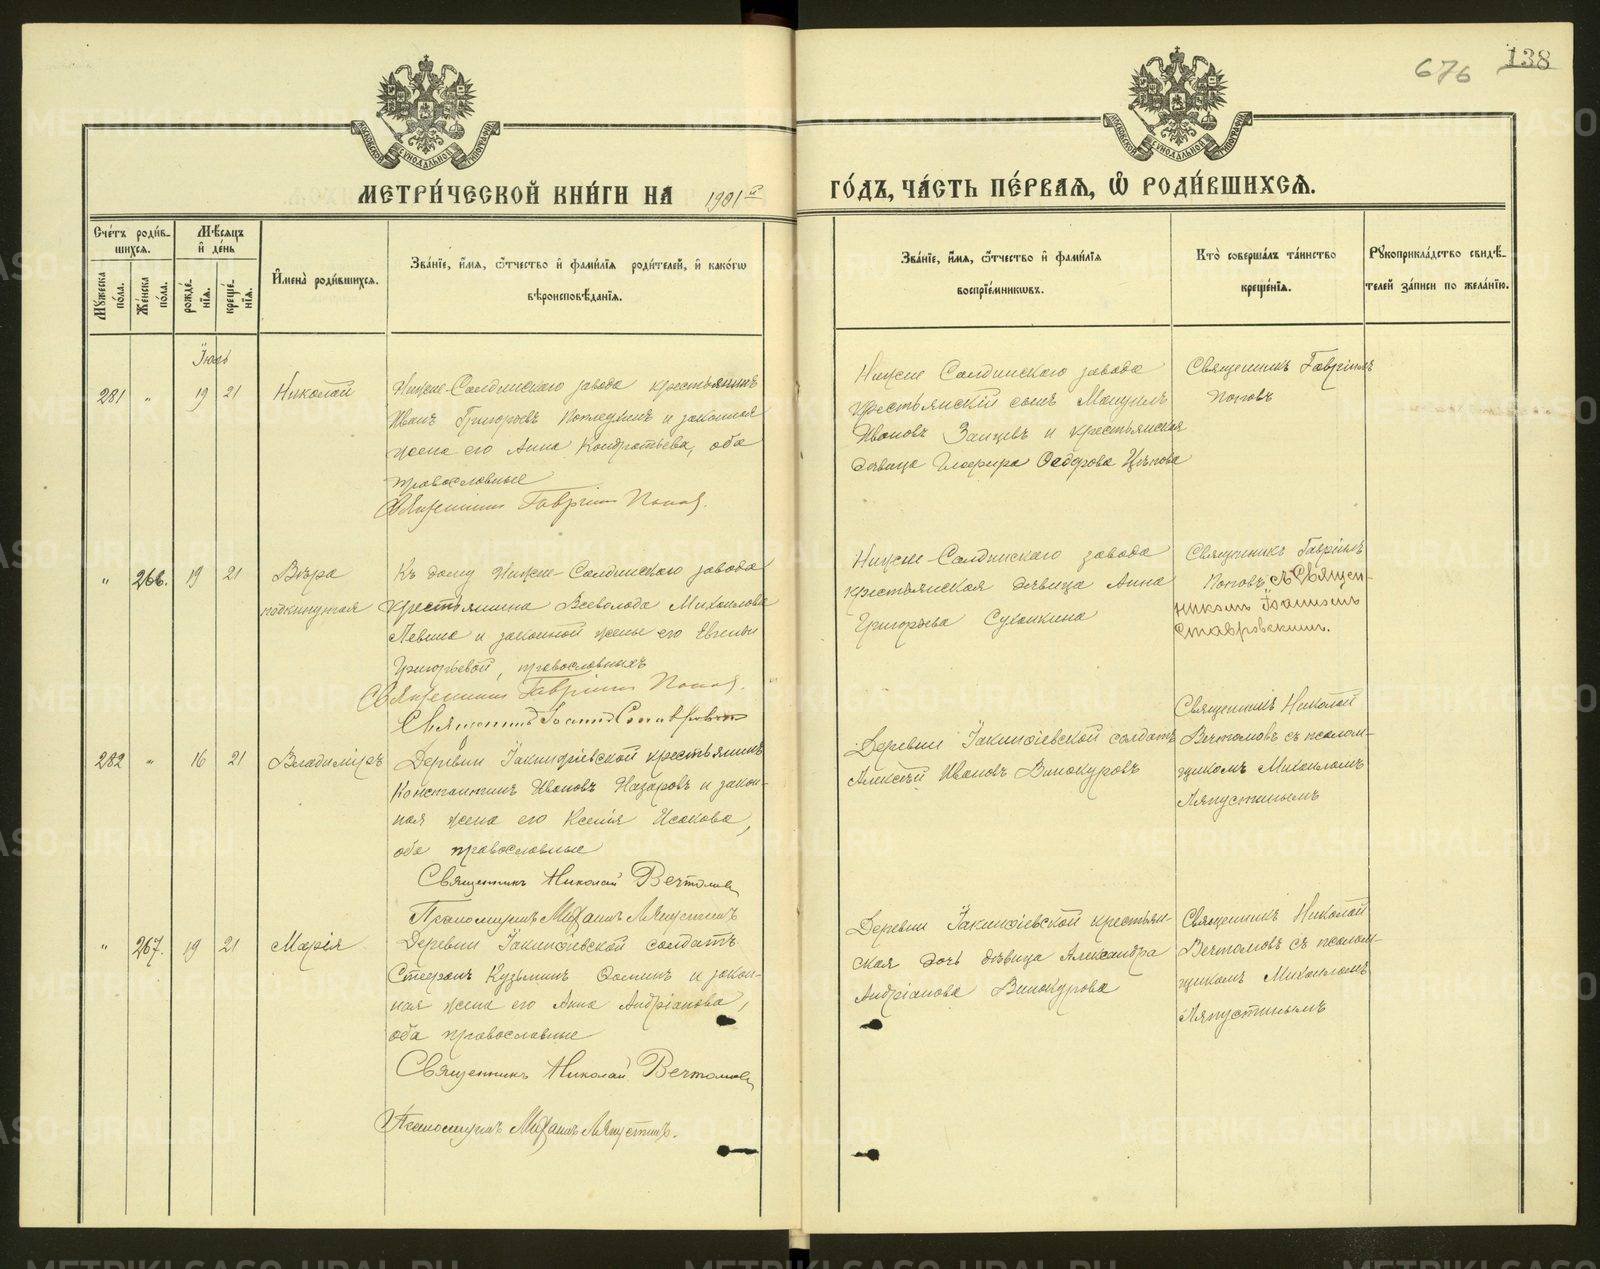 676 138
МОСКОВСКОЙ СѴНОДАЛЬНОЙ ТИПОГРАФІИ
МОСКОВСКОЙ СѴНОДАЛЬНОЙ ТИПОГРАФІИ
МЕТРИ́ЧЕСКОЙ КНИ́ГИ НА 1901й ГО́ДЪ, ЧА́СТЬ ПЕ́РВАЯ, Ѡ РОДИ́ВШИХСЯ.
Сче́тъ роди́в-
шихся.
Мѣ́сяцъ
и де́нь
Мꙋ́жеска по́ла.
Же́нска по́ла.
рожде́нїя.
креще́нїя.
Имена̀ роди́вшихся.
Зва́нїе, и́мя, ѻ҆́тчество и фами́лїя роди́телей, и како́гѡ
вѣроисповѣ́данїя.
Зва́нїе, и́мя, ѻ҆́тчество и фами́лїя
воспрїе́мникѡвъ.
Кто̀ соверша́лъ та́инство
креще́нїя.
Рꙋкоприкла́дство свидѣ́-
телей за́писи по жела́нїю.
Іюль
281 " 19 21 Николай
Нижне-Салдинскаго завода крестьянинъ
Иванъ Григорьевъ и законная
жена его Анна Кондратьева, оба
православные
Священникъ Гавріилъ Поповъ.
Нижне Салдинскаго завода
крестьянскій сынъ Мануилъ
Ивановъ Зайцевъ и крестьянская
дѣвица Глафира Ѳеодорова
Священникъ Гавріилъ
Поповъ
" 266. 19 21 Вѣра
подкинутая
Къ дому Нижне-Салдинскаго завода
крестьянина Всеволода Михайлова
Левина и законной жены его Евгеніи
Григорьевой, православныхъ
Священникъ Гавріилъ Поповъ.
Священникъ Іоаннъ Ставровскій
Нижне-Салдинскаго завода
крестьянская дѣвица Анна
Григорьева Суханкина
Священникъ Гавріилъ
Поповъ съ Священ-
никомъ Іоанномъ
Ставровскимъ.
282 " 16 21 Владиміръ
Деревни Іакинѳіевской крестьянинъ
Константинъ Ивановъ Назаровъ и закон-
ная жена его Ксенія Исакова,
оба православные
Священникъ Николай Вечтомовъ
Псаломщикъ Михаилъ Ляпустинъ
Деревни Іакинѳіевской солдатъ
Алексѣй Ивановъ Винокуровъ
Священникъ Николай
Вечтомовъ съ псалом-
щикомъ Михаиломъ
Ляпустинымъ
" 267. 19 21 Марія
Деревни Іакинѳіевской солдатъ
Стефанъ Кузьминъ Ѳоминъ и закон-
ная жена его Анна Андріанова,
оба православные
Священникъ Николай Вечтомовъ
Псаломщикъ Михаилъ Ляпустинъ.
Деревни Іакинѳіевской крестьян-
ская дочь дѣвица Александра
Андріанова Винокурова
Священникъ Николай
Вечтомовъ съ псалом-
щикомъ Михаиломъ
Ляпустинымъ
METRIKI.GASO-URAL.RU